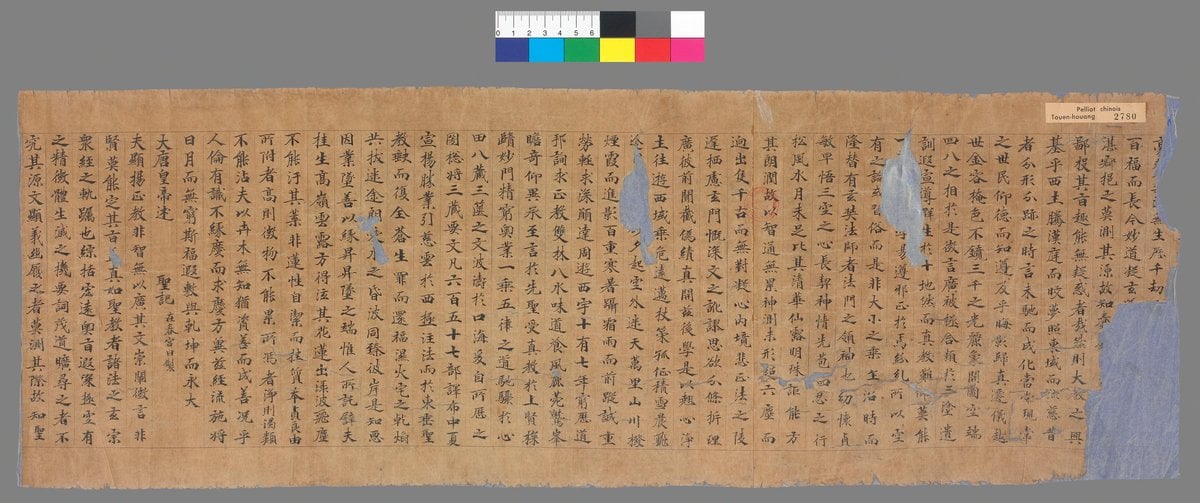 生歷千劫
百福而長今妙道凝玄
湛寂挹之莫測其源故知蠢
鄙投其旨趣能無疑惑者哉然則大教之興
基乎西土騰漢庭而皎夢照東域而流慈昔
者分形分跡之時言未馳而成化當常現常
之世民仰德而知遵及乎晦影歸真遷儀越
世金容掩色不鏡三千之光麗象開圖空端
四八之相於是微言廣被拯含類於三塗遺
訓遐宣導群生於十地然而真教難仰莫能
易遵邪正於焉紛糺所以空
有之論或習俗而是非大小之乘乍沿時而
隆替有玄奘法師者法門之領袖也幼懷貞
敏早悟三空之心長契神情先苞四忍之行
松風水月未足比其清華仙露明珠詎能方
其朗潤故以智通無累神測未形超六塵而
迥出隻千古而無對凝心內境悲正法之陵
遲栖慮玄門慨深文之訛謬思欲分條析理
廣彼前聞截偽續真開茲後學是以翹心淨
土往遊西域乘危遠邁杖策孤征積雪晨飛
途夕起空外迷天萬里山川撥
煙霞而進影百重寒暑躡霜雨而前蹤誠重
勞輕求深願達周遊西宇十有七年窮歷道
邦詢求正教雙林八水味道飡風鹿菀鷲峯
瞻奇仰異承至言於先聖受真教於上賢探
賾妙門精窮奧業一乘五律之道馳驟於心
田八藏三篋之文波濤於口海爰自所歷之
國総將三藏要文凡六百五十七部譯布中夏
宣揚勝業引慈雲於西極注法雨於東垂聖
教缺而復全蒼生罪而還福濕火宅之乾焰
共拔迷途朗愛水之昏波同臻彼岸是知惡
因業墜善以緣昇昇墜之端惟人所託譬夫
桂生高嶺雲露方得泫其花蓮出淥波飛塵
不能汙其葉非蓮性自潔而桂質本貞良由
所附者高則微物不能累所馮者淨則濁類
不能沾夫以卉木無知猶資善而成善況乎
人倫有識不緣慶而求慶方冀茲經流施將
日月而無窮斯福遐敷與乹坤而永大
大唐皇帝述 聖記 在春宮日製
夫顯揚正教非智無以廣其文崇闡微言非
賢莫能定其旨真如聖教者諸法之玄宗
衆經之軌躅也綜括宏遠奧旨遐深極空有
之精微體生滅之機要詞茂道曠尋之者不
究其源文顯義幽履之者莫測其際故知聖
Pelliot chinois
Touen-houang 2780
0 1 2 3 4 5 6